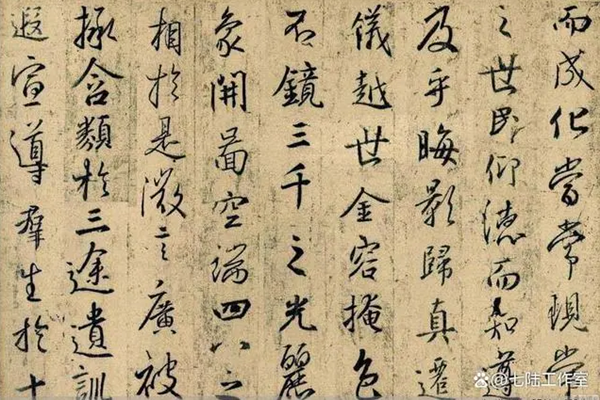 而成化當常現常
之世民仰德而知遵
及乎晦影歸真遷
儀越世金容掩色
不鏡三千之光麗
象開圖空端四八之
相於是微言廣被
拯含類於三途遺訓
遐宣導群生於十
@七陆工作室